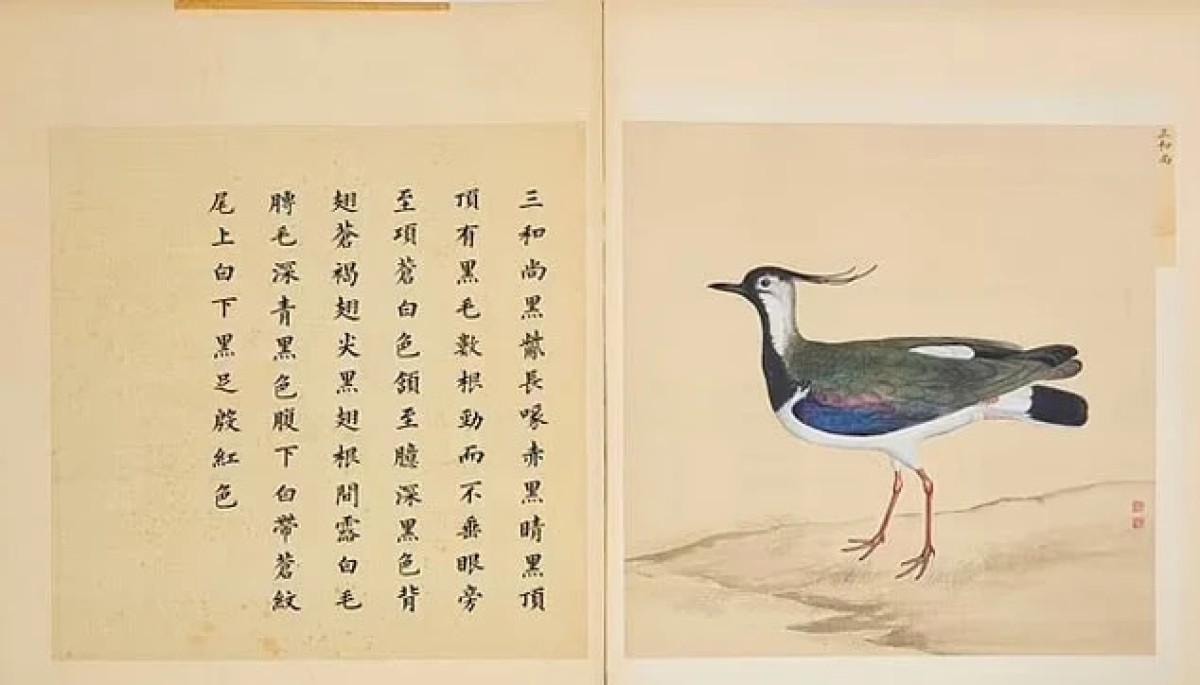 三和尚黑長喙赤黑睛黑頂
頂有黑毛數根勁而不垂眼旁
至項蒼白色頷至臆深黑色背
翅蒼褐翅尖黑翅根間露白毛
膊毛深青黑色腹下白帶蒼紋
尾上白下黑足殷紅色
三和尚